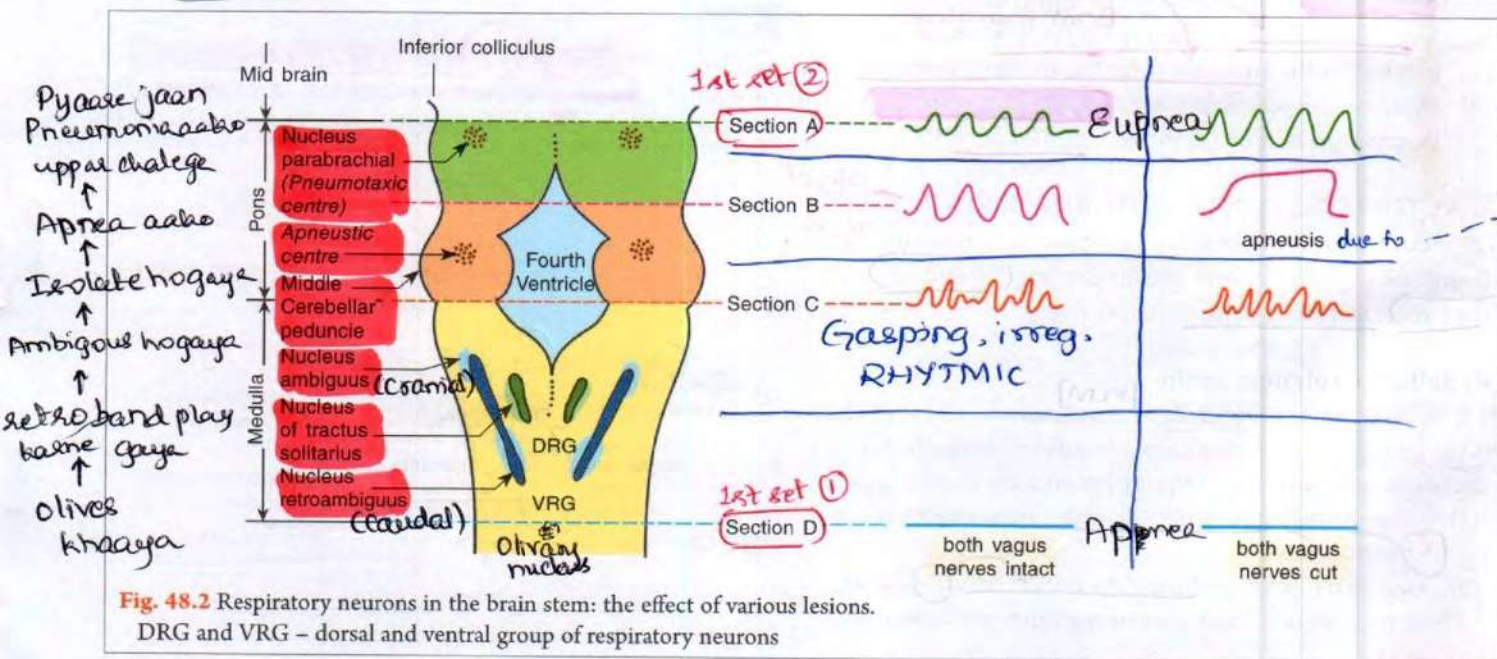 Inferior colliculus
Mid brain
Pons
Medulla
Pyaase jaan
Pneumonia aabo
uppar chalege
↑
Apnea aabo
↑
Isolate hogaya
↑
Ambigous hogaya
↑
retro band play
karne gaya
↑
Olives
khaaya
Nucleus
parabrachial
(Pneumotaxic
centre)
Apneustic
centre
Middle
Cerebellar
peduncie
Nucleus
ambiguus (Cranial)
Nucleus
of tractus
solitarius
Nucleus
retroambiguus
(Caudal)
Fourth
Ventricle
DRG
VRG
Olivary
nucleus
1st set ②
Section A
Eupnea
Section B
apneusis due to
Section C
Gasping, irreg.
RHYTMIC
1st set ①
Section D
Apnea
both vagus
nerves intact
both vagus
nerves cut
Fig. 48.2 Respiratory neurons in the brain stem: the effect of various lesions.
DRG and VRG – dorsal and ventral group of respiratory neurons